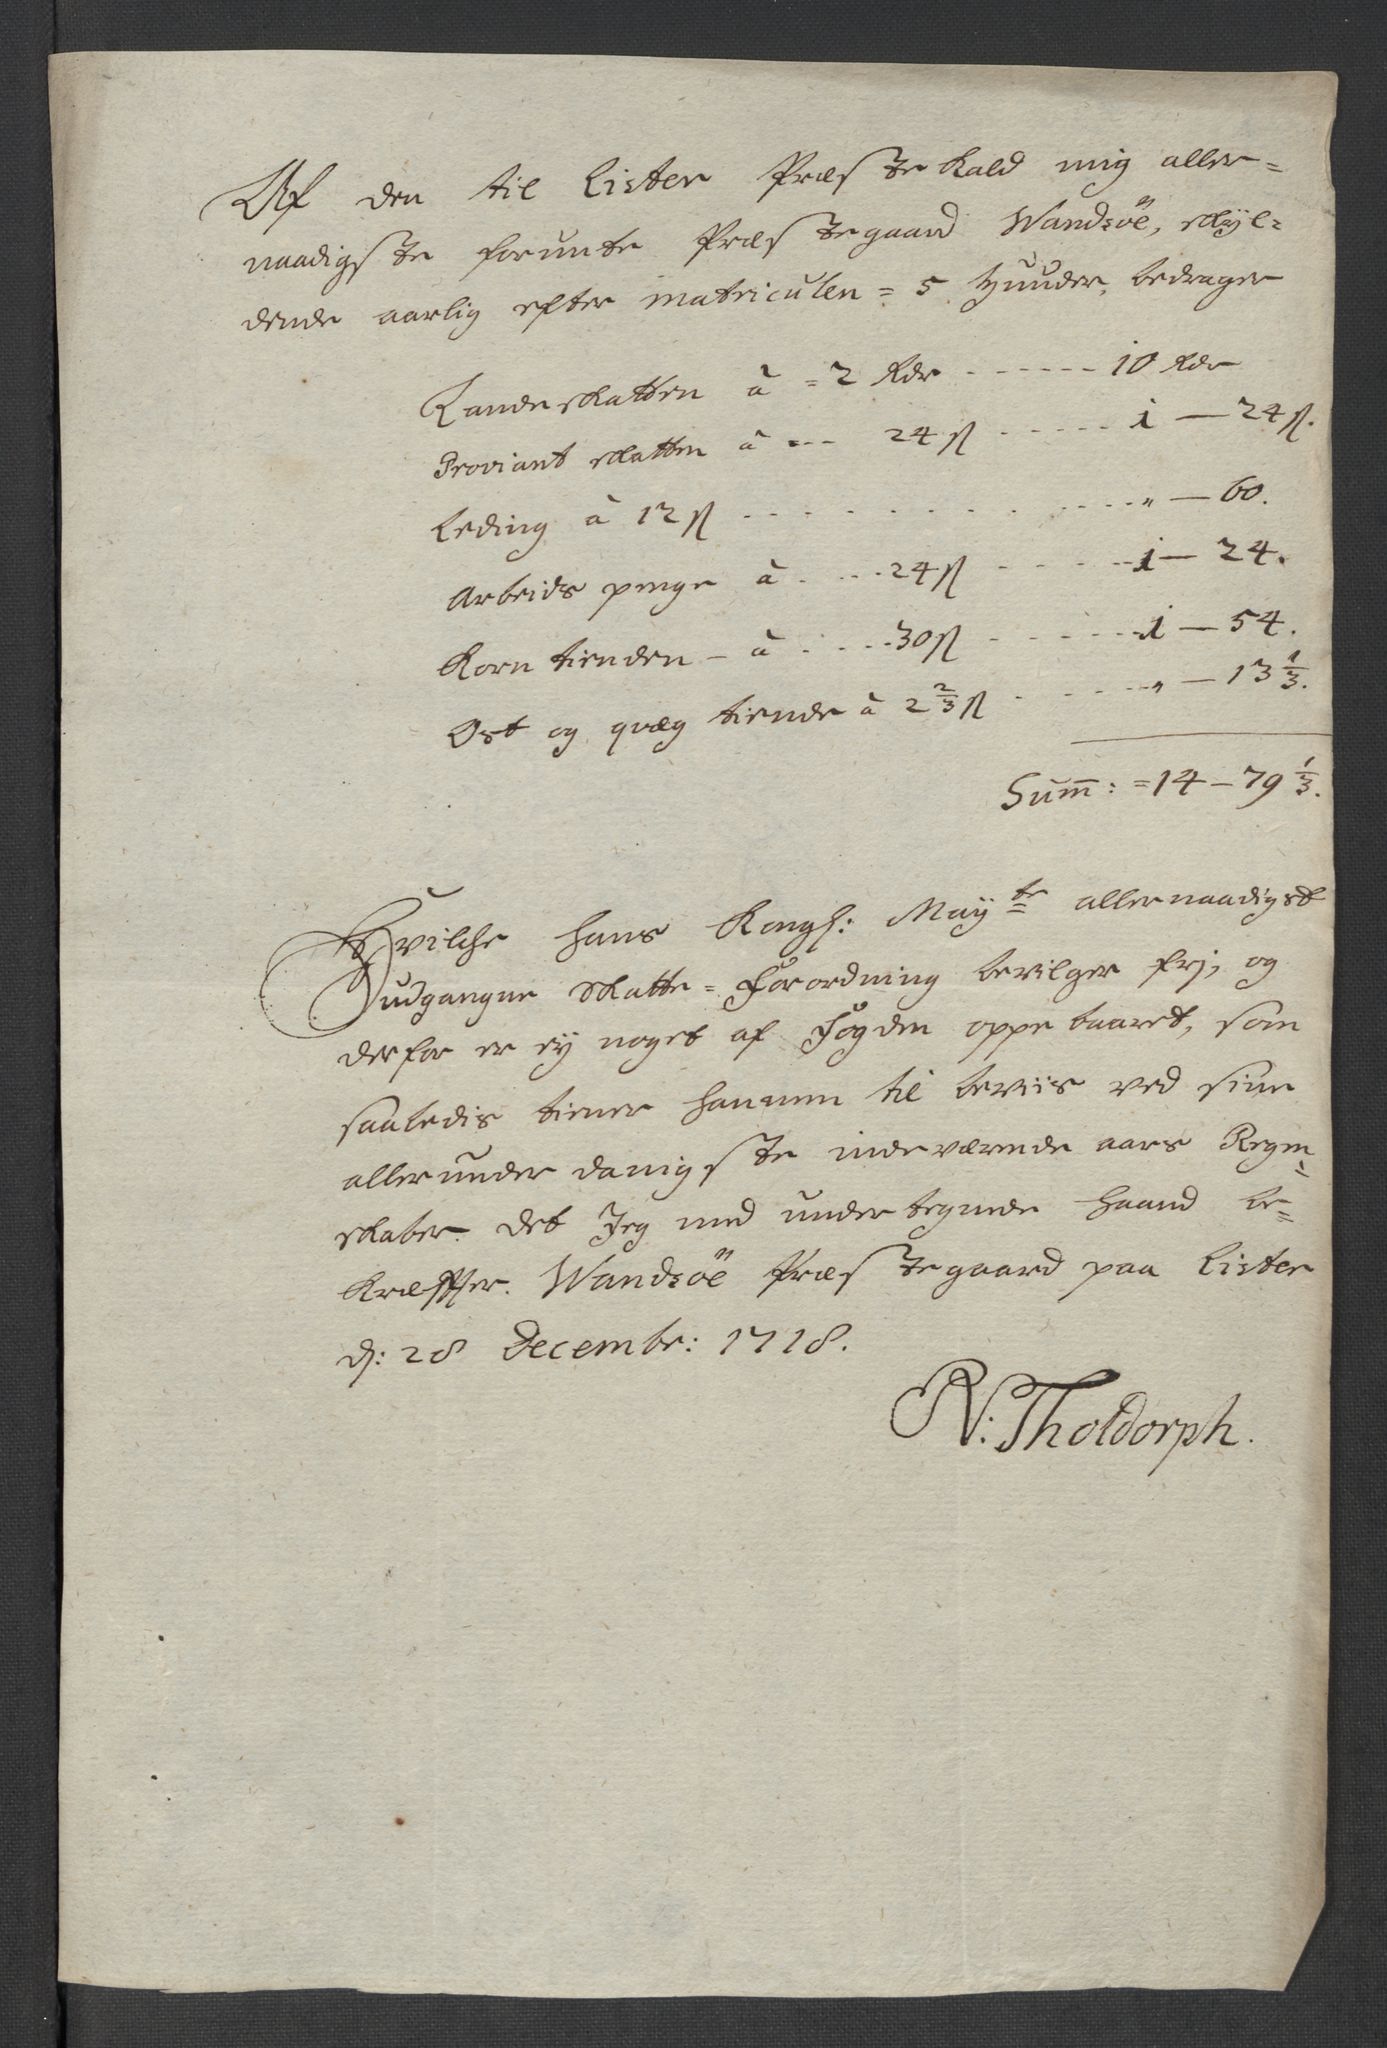 Af den til Lister Præstekald mig aller=
naadigste forunte Præstegaard Wandsöe, skyl=
dende aarlig efter matriculen = 5 huuder, bedrager
Landskatten à = 2 Rdr - - - - - - 10 Rdr
Proviant skatten à --- 24 ß - - - - - 1 — 24 ß.
Leding à 12 ß - - - - - - - - - - - - " — 60.
Arbeids penge à - - - 24 ß - - - - - 1 — 24.
Korn tienden - à - - - 30 ß - - - - - 1 — 54.
Ost og qvæg tiende à 2 2/3 ß - - - - - " — 13 1/3.
Summ: = 14 — 79 1/3.
Hvilche hans Kongl: Mayte allernaadigst
udgangne Skatte = Forordning bevilger frj, og
derfor er ey noget af Fogden oppebaaret, som
saaledis tiener hannem til beviis ved sine
allerunderdanigste indeværende aars Regen=
skaber. Det Jeg med undertegnede haand be=
kræffter. Wandsöe Præstegaard paa Lister
d: 28 Decembr: 1718.
N: Tholdorph.